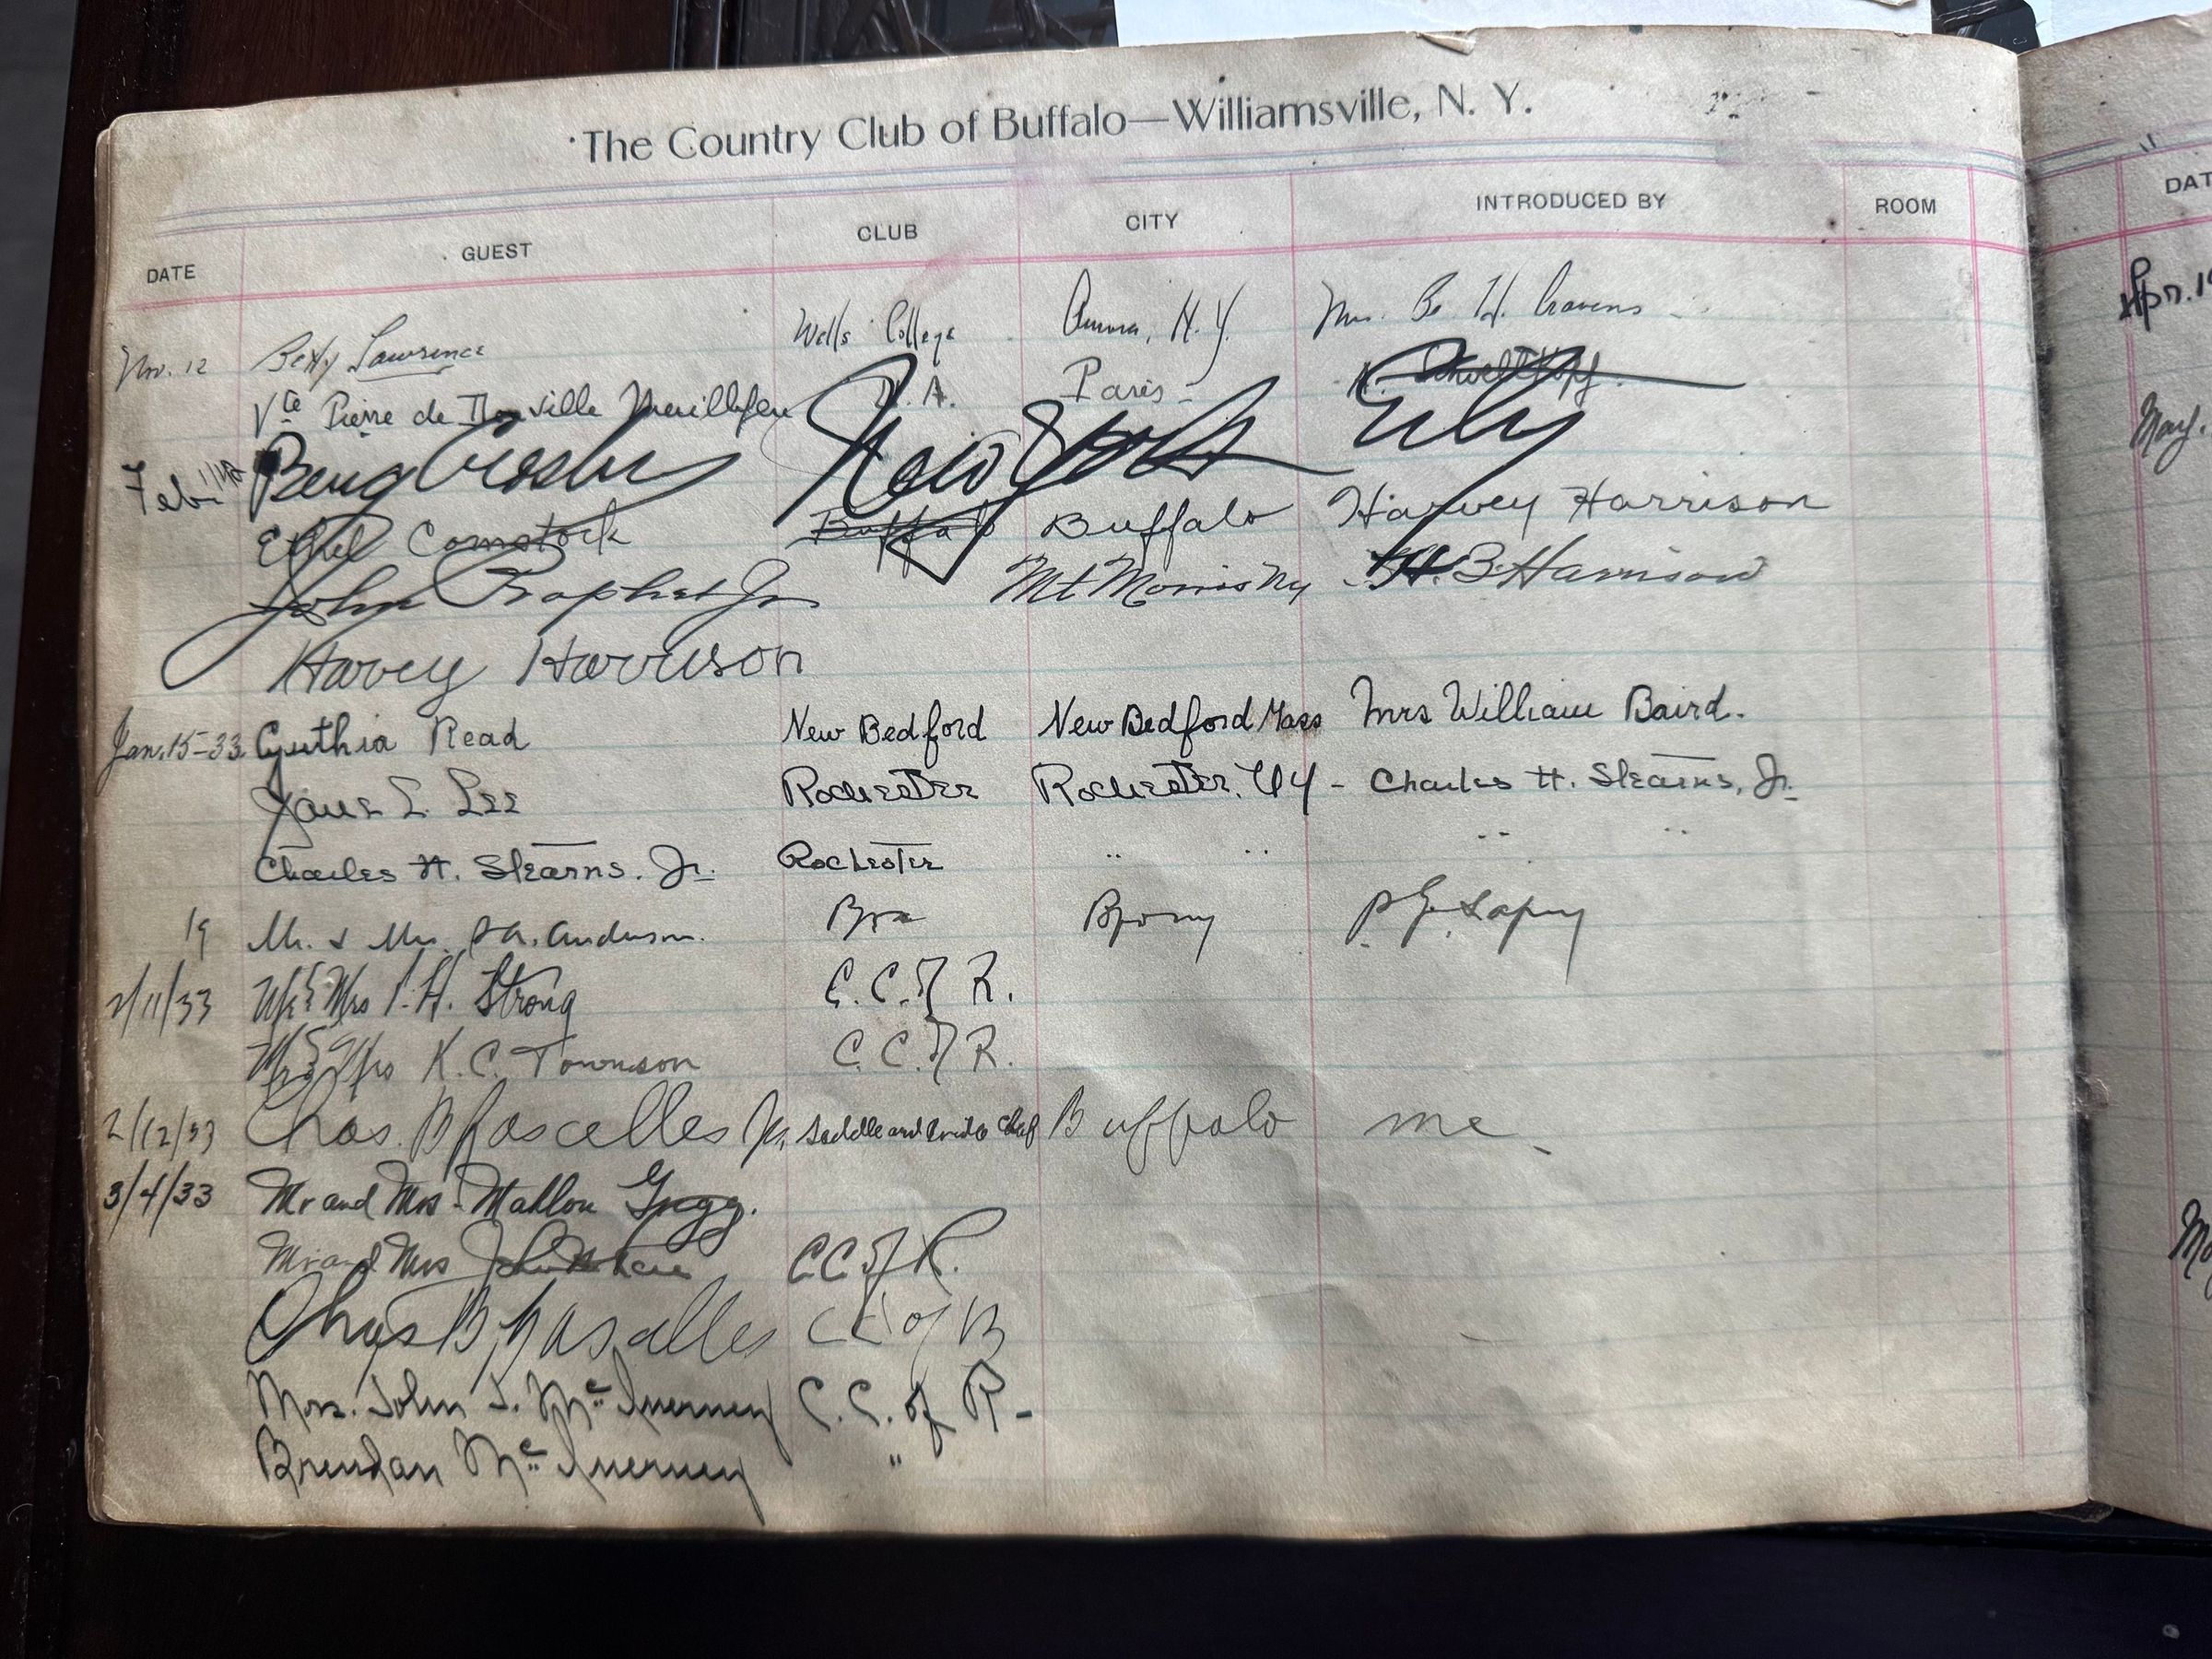 The Country Club of Buffalo—Williamsville, N. Y.
DATE GUEST CLUB CITY INTRODUCED BY ROOM
Nov. 12 Betty Lawrence Wells College Aurora, N.Y. Mrs. H. Cravens
Vte Pierre de Paris - Schoellkopf
Feb. Bing Crosby New York
Ethel Comstock Buffalo Buffalo Harvey Harrison
John Prophet Jr Mt Morris Ny H. B. Harrison
Harvey Harrison
Jan. 15-33 Cynthia Read New Bedford New Bedford Mass Mrs William Baird.
Jane L. Lee Rochester Rochester, NY - Charles H. Stearns, Jr.
Charles H. Stearns, Jr. Rochester " " " "
19 Mr. & Mrs. Anderson.
2/11/33 Mr & Mrs P. H. Strong C. C. of R.
Mr & Mrs K. C. Townson C. C. of R.
2/12/33 Chas. B Lascelles Jr. Saddle and Bridle Club Buffalo me
3/4/33 Mr and Mrs - Mahlon Gregg.
Mr and Mrs John C.C. of R.
Chas B Lascelles C C of B
Mrs. John J. McInerney C. C. of R -
Brendan McInerney "
DAT
Apr. 19
May.